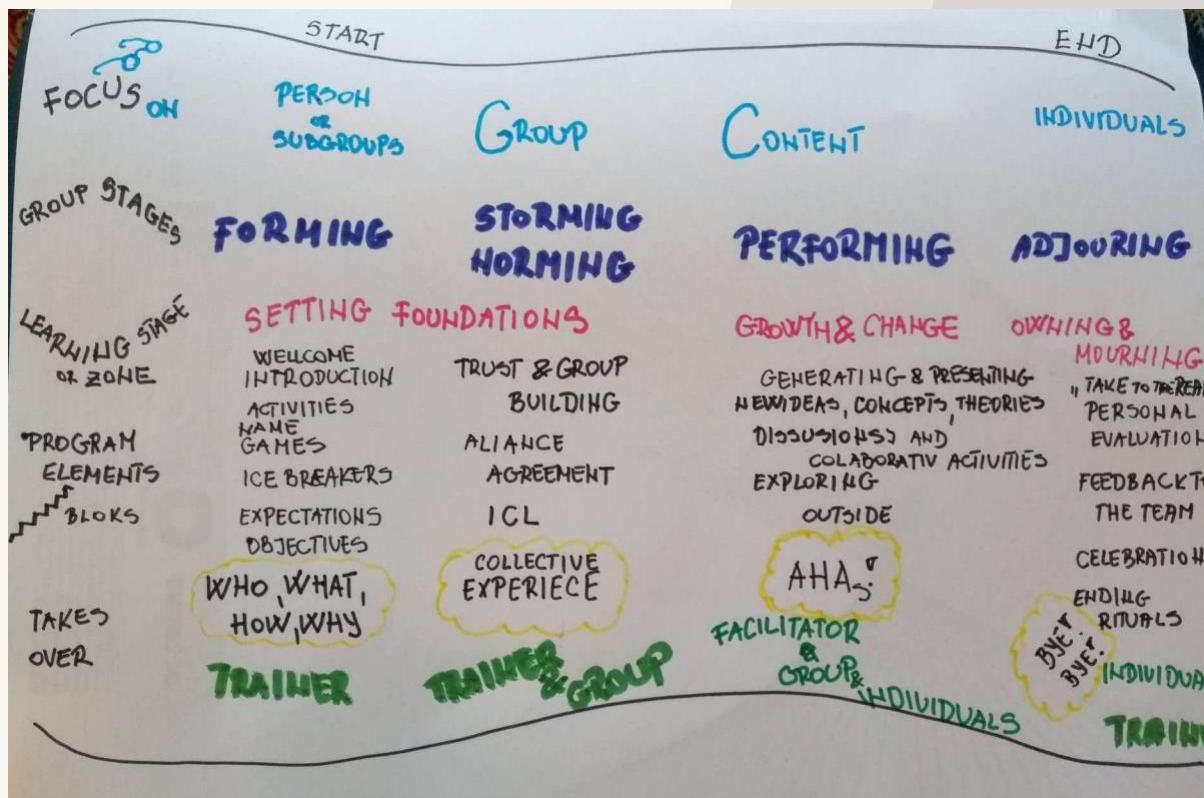 START
END
FOCUS ON
PERSON
OR
SUBGROUPS
GROUP
CONTENT
INDIVIDUALS
GROUP STAGES
FORMING
STORMING
NORMING
PERFORMING
ADJOURING
LEARNING STAGE
OR ZONE
SETTING FOUNDATIONS
GROWTH & CHANGE
OWNING &
MOURNING
PROGRAM
ELEMENTS
BLOKS
WELLCOME
INTRODUCTION
ACTIVITIES
NAME
GAMES
ICE BREAKERS
EXPECTATIONS
OBJECTIVES
WHO, WHAT,
HOW, WHY
TRUST & GROUP
BUILDING
ALIANCE
AGREEMENT
ICL
COLLECTIVE
EXPERIECE
GENERATING & PRESENTING
NEW IDEAS, CONCEPTS, THEORIES
AND
COLABORATIV ACTIVITIES
EXPLORING
OUTSIDE
AHAs!
"TAKE TO THE
PERSONAL
EVALUATION
FEEDBACK
THE TEAM
CELEBRATION
ENDING
RITUALS
BYE!
BYE!
TAKES
OVER
TRAINER
TRAINER
& GROUP
FACILITATOR
&
GROUP &
INDIVIDUALS